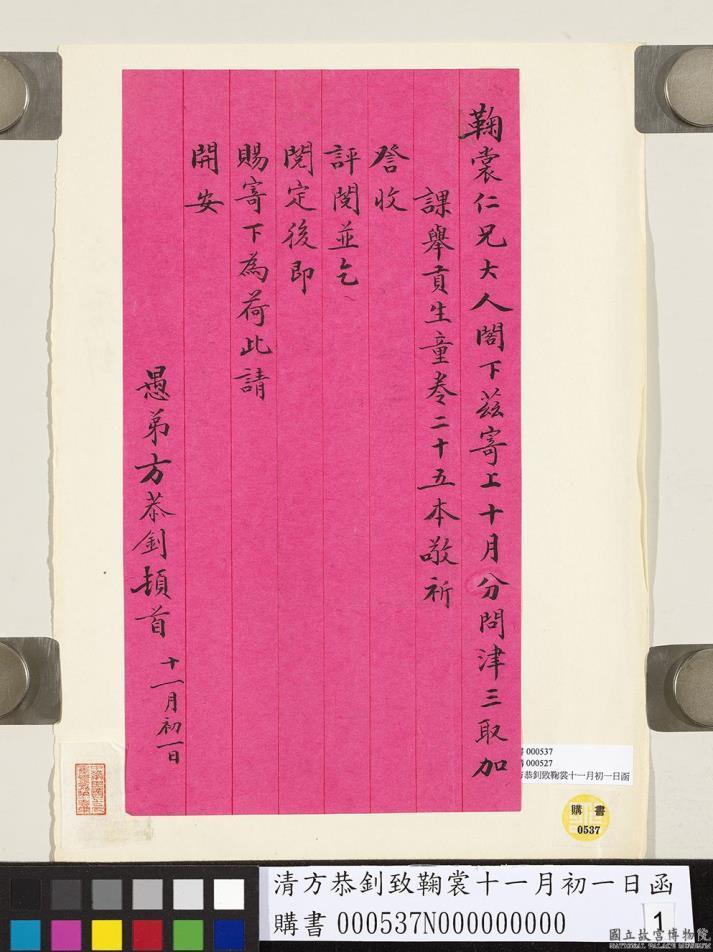 鞠裳仁兄大人閣下茲寄上十月分問津三取加
課舉貢生童卷二十五本敬祈
詧收
評閱並乞
閱定後即
賜寄下為荷此請
開安
愚弟方恭釗頓首
十一月初一日
000537
000527
方恭釗致鞠裳十一月初一日函
購 書
0537
清方恭釗致鞠裳十一月初一日函
購書 000537N000000000
1
國立故宮博物院
NATIONAL PALACE MUSEUM